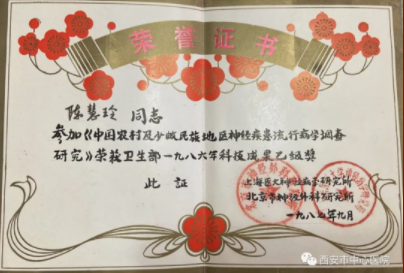 荣誉证书
陈慧玲 同志
参加《中国农村及少数民族地区神经疾患流行病学调查
研究》荣获卫生部一九八六年科技成果乙级奖
此证
上海医大神经病学研究所
北京市神经外科研究所
一九八七年九月
西安市中心医院